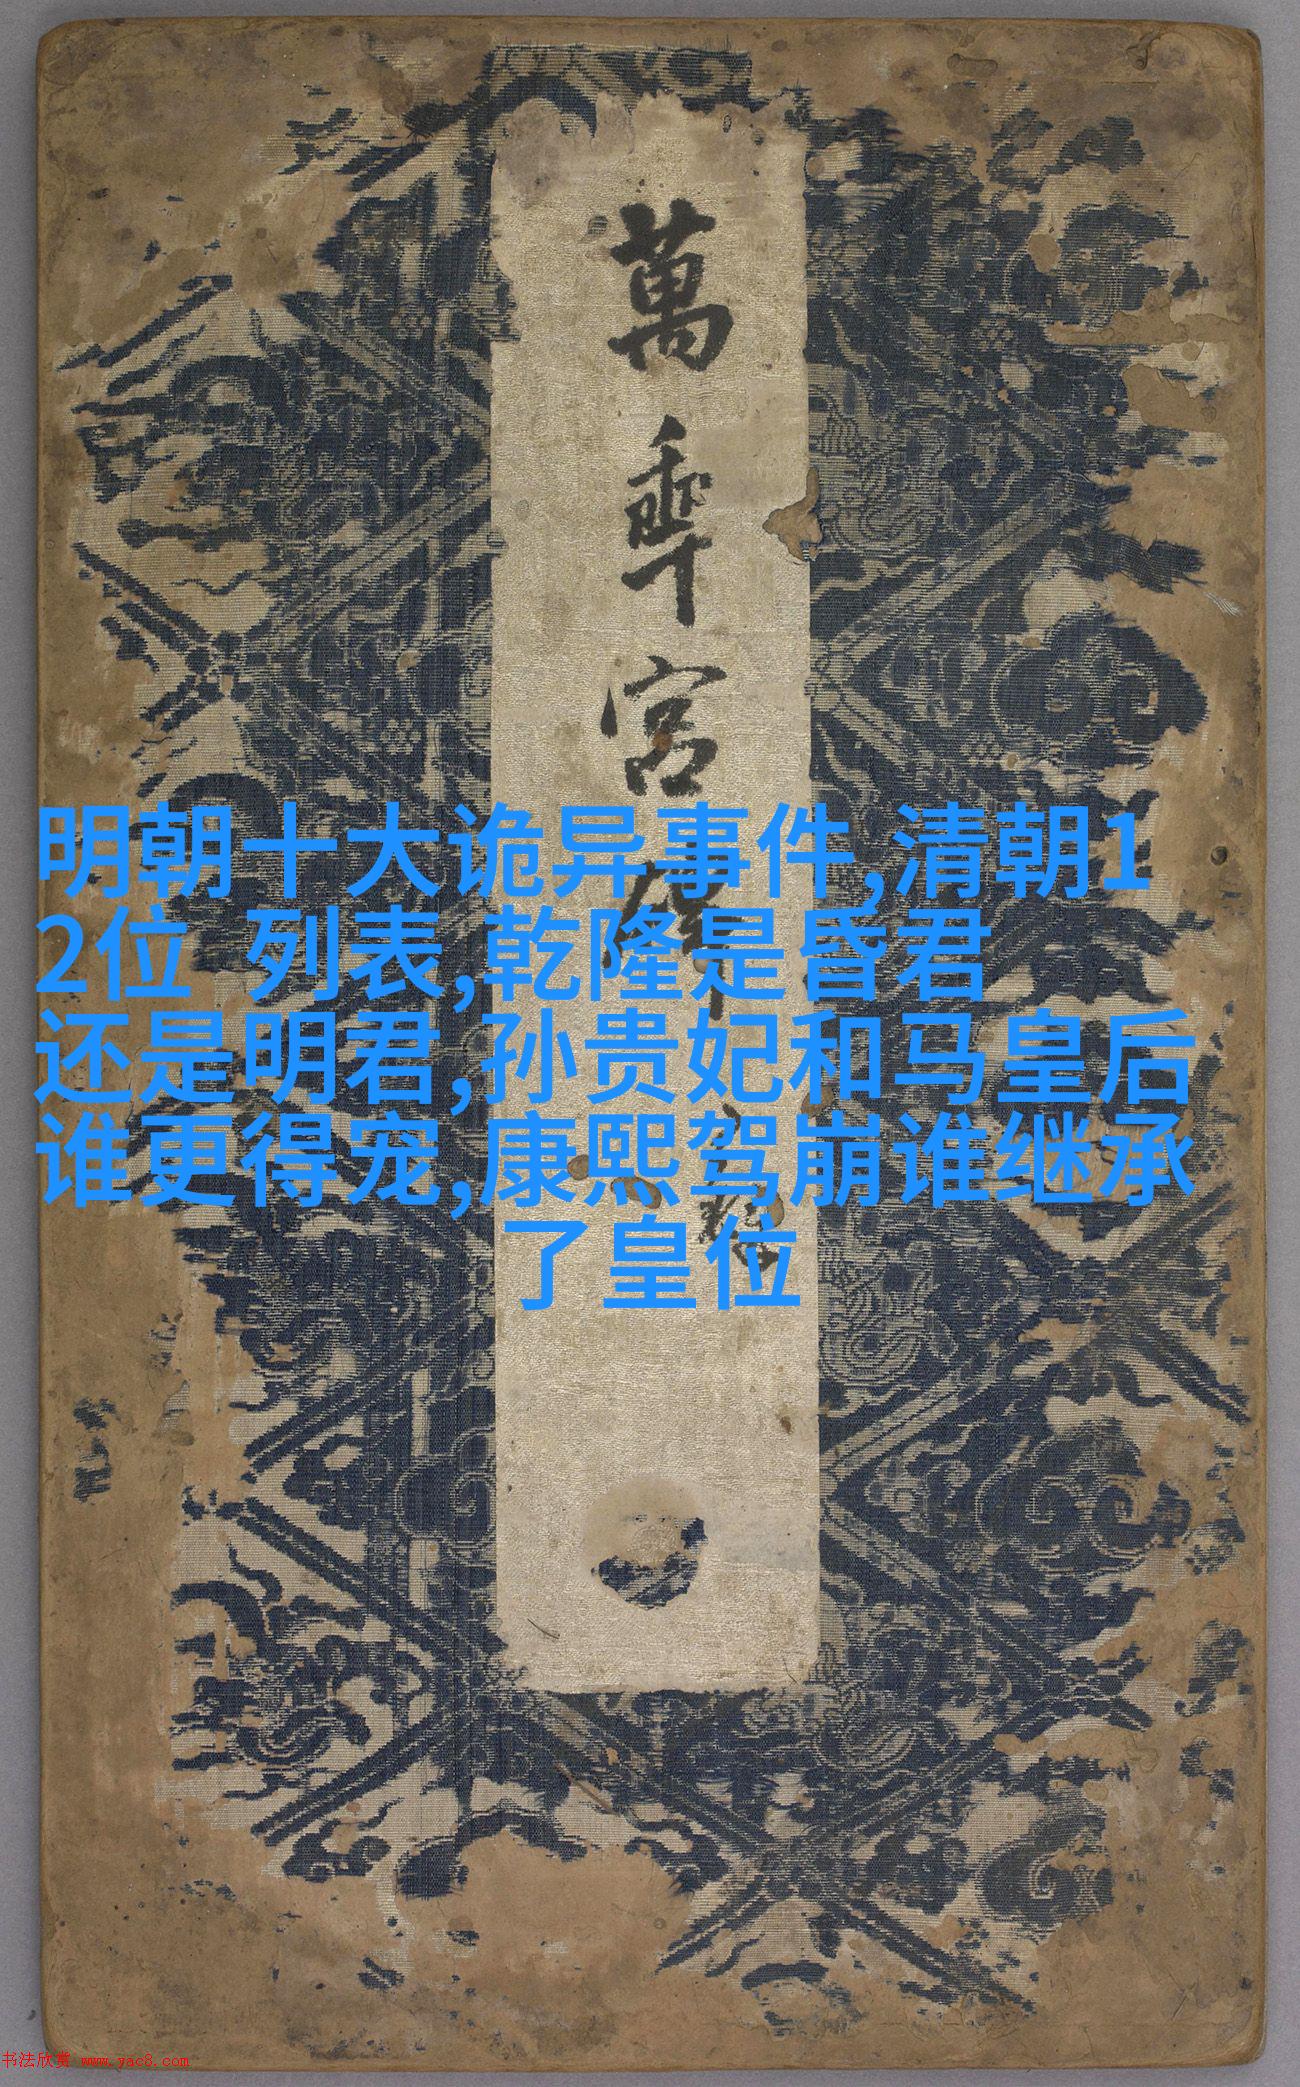 萬年宮
明朝十大诡异事件,清朝1
2位 列表,乾隆是昏君
还是明君,孙贵妃和马皇后
谁更得宠,康熙驾崩谁继承
了皇位
书法欣赏 www.yac8.com